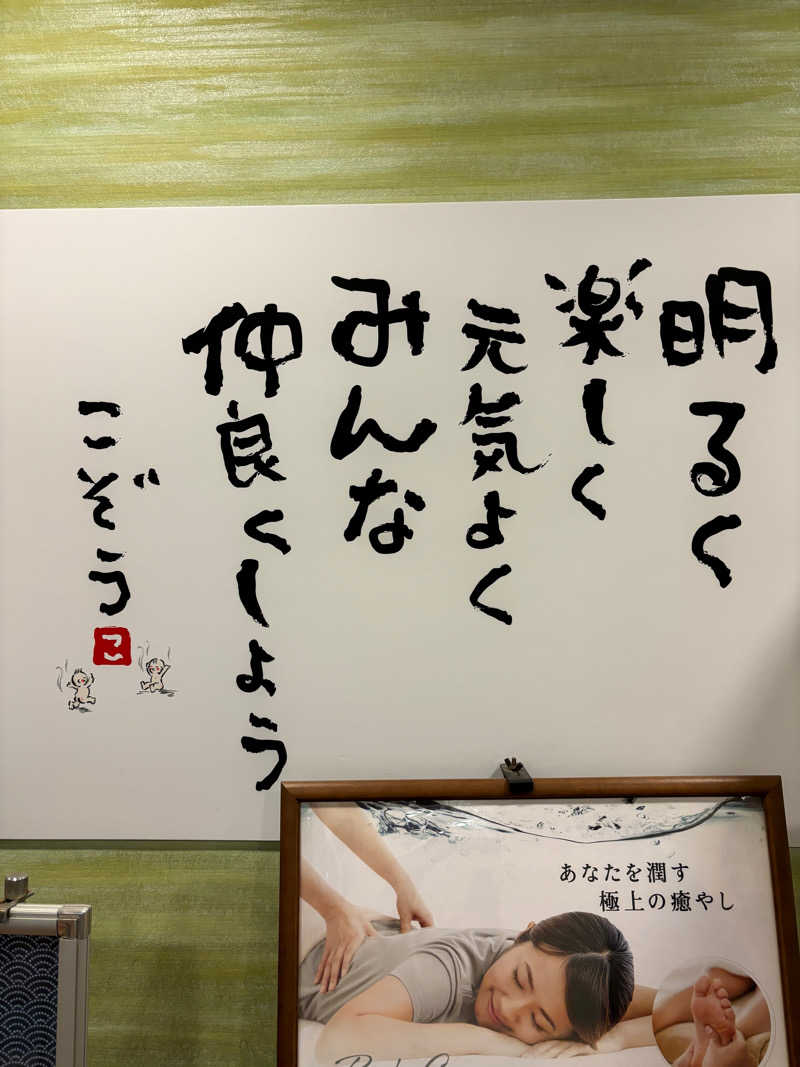 明るく
楽しく
元気よく
みんな
仲良くしよう
こぞう
こ
あなたを潤す
極上の癒やし